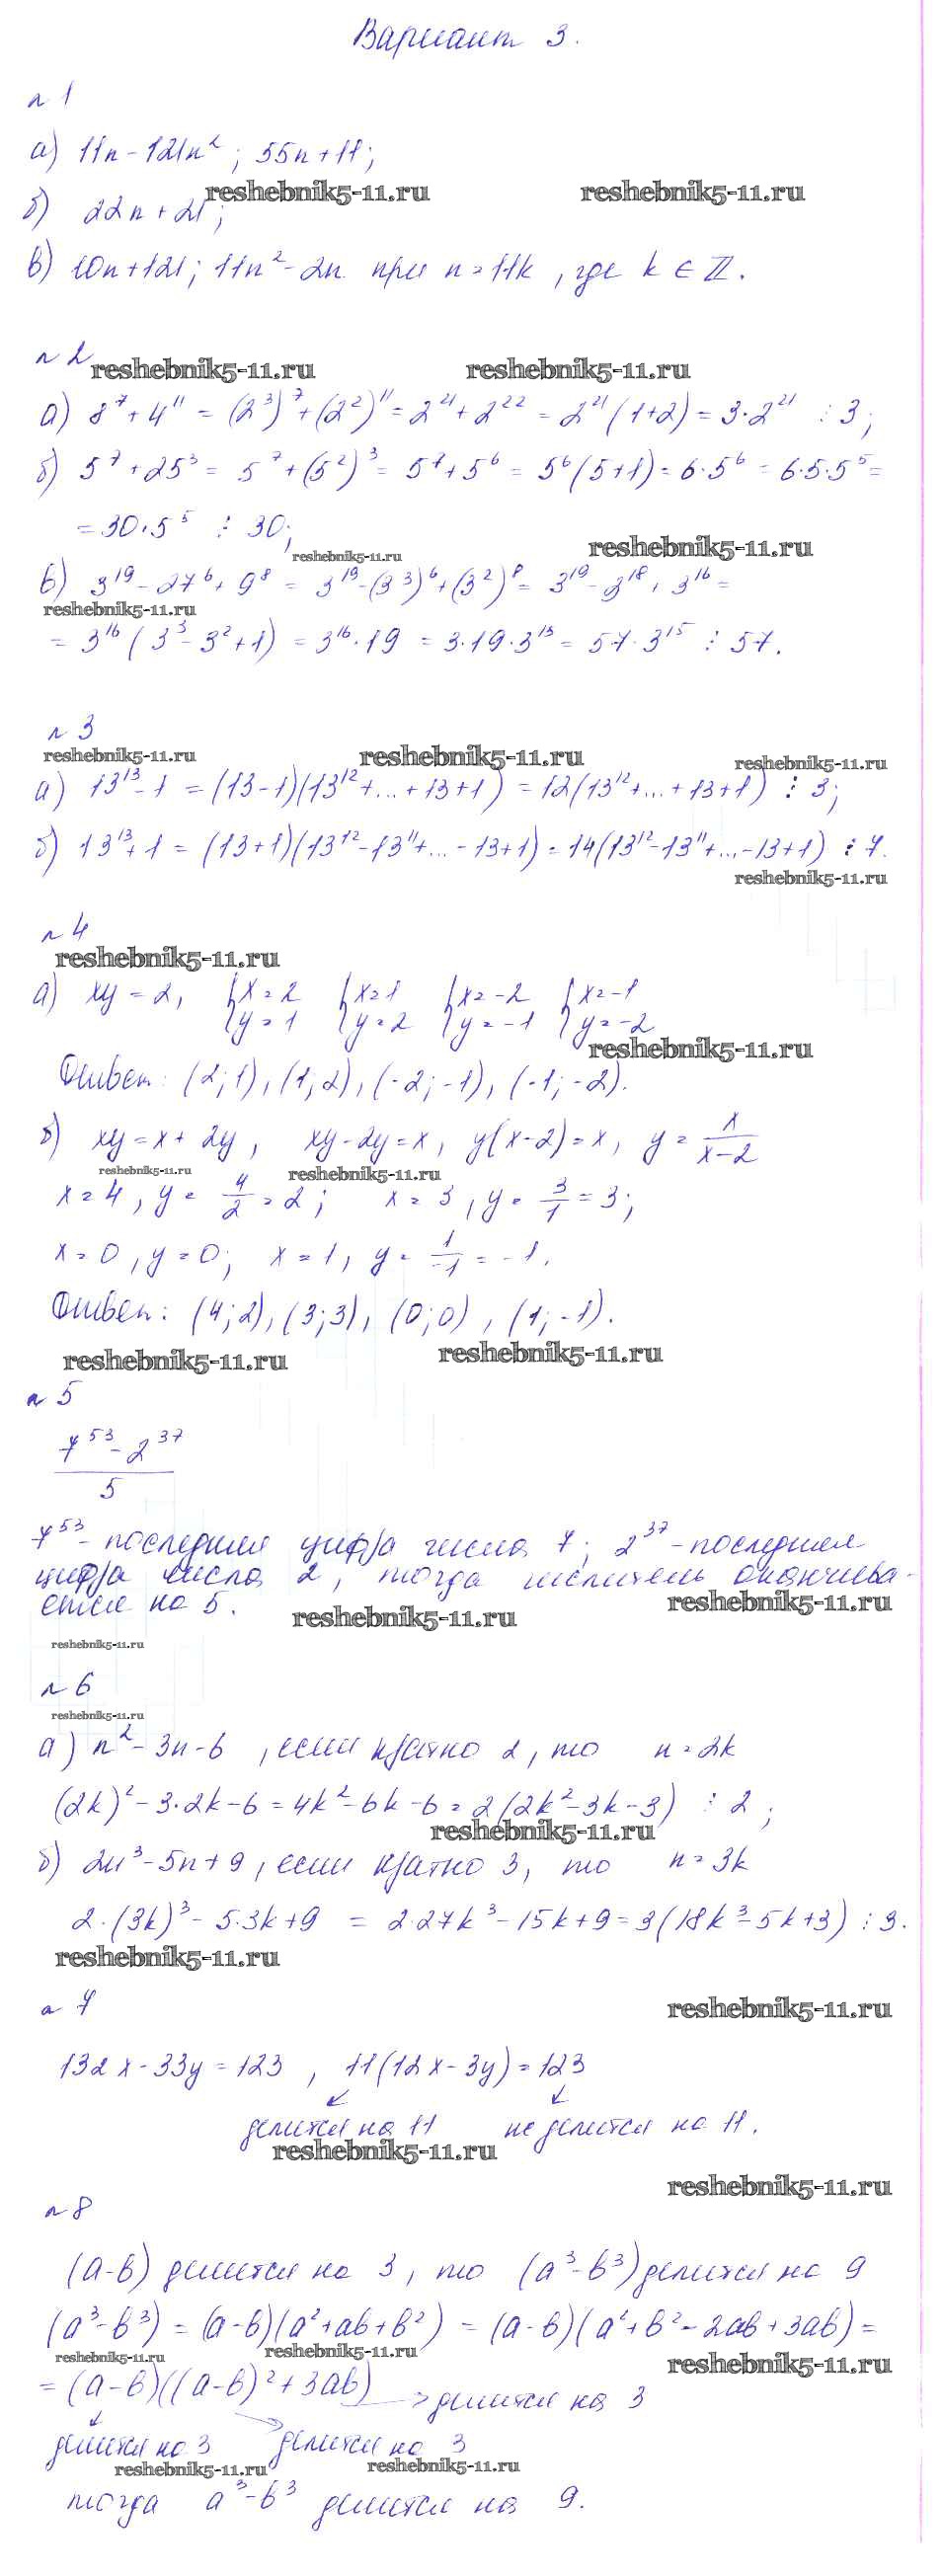 Вариант 3.
n 1
а) 11n - 121n²; 55n + 11;
reshebnik5-11.ru reshebnik5-11.ru
б) 22n + 21;
в) 10n + 121; 11n² - 2n при n = 11k, где k ∈ ℤ.
n 2
reshebnik5-11.ru reshebnik5-11.ru
а) 8⁷ + 4¹¹ = (2³)⁷ + (2²)¹¹ = 2²¹ + 2²² = 2²¹(1+2) = 3·2²¹ ⋮ 3;
б) 5⁷ + 25³ = 5⁷ + (5²)³ = 5⁷ + 5⁶ = 5⁶(5+1) = 6·5⁶ = 6·5·5⁵ =
= 30·5⁵ ⋮ 30;
reshebnik5-11.ru reshebnik5-11.ru
в) 3¹⁹ - 27⁶ + 9⁸ = 3¹⁹ - (3³)⁶ + (3²)⁸ = 3¹⁹ - 3¹⁸ + 3¹⁶ =
reshebnik5-11.ru
= 3¹⁶(3³ - 3² + 1) = 3¹⁶·19 = 3·19·3¹⁵ = 57·3¹⁵ ⋮ 57.
n 3
reshebnik5-11.ru reshebnik5-11.ru reshebnik5-11.ru
а) 13¹³ - 1 = (13-1)(13¹² + ... + 13 + 1) = 12(13¹² + ... + 13 + 1) ⋮ 3;
б) 13¹³ + 1 = (13+1)(13¹² - 13¹¹ + ... - 13 + 1) = 14(13¹² - 13¹¹ + ... - 13 + 1) ⋮ 7.
reshebnik5-11.ru
n 4
reshebnik5-11.ru
а) xy = 2, {x = 2 {x = 1 {x = -2 {x = -1
y = 1 y = 2 y = -1 y = -2
reshebnik5-11.ru
Ответ: (2; 1), (1; 2), (-2; -1), (-1; -2).
б) xy = x + 2y, xy - 2y = x, y(x-2) = x, y = x/(x-2)
reshebnik5-11.ru reshebnik5-11.ru
x = 4, y = 4/2 = 2; x = 3, y = 3/1 = 3;
x = 0, y = 0; x = 1, y = 1/-1 = -1.
Ответ: (4; 2), (3; 3), (0; 0), (1; -1).
reshebnik5-11.ru reshebnik5-11.ru
n 5
(7⁵³ - 2³⁷)/5
7⁵³ - последняя цифра числа 7; 2³⁷ - последняя
цифра числа 2, тогда числитель оканчива-
ется на 5.
reshebnik5-11.ru reshebnik5-11.ru
reshebnik5-11.ru
n 6
reshebnik5-11.ru
а) n² - 3n - 6, если кратно 2, то n = 2k
(2k)² - 3·2k - 6 = 4k² - 6k - 6 = 2(2k² - 3k - 3) ⋮ 2;
reshebnik5-11.ru
б) 2n³ - 5n + 9, если кратно 3, то n = 3k
2·(3k)³ - 5·3k + 9 = 2·27k³ - 15k + 9 = 3(18k³ - 5k + 3) ⋮ 3.
reshebnik5-11.ru
n 7
reshebnik5-11.ru
132x - 33y = 123, 11(12x - 3y) = 123
делится на 11 не делится на 11.
reshebnik5-11.ru
reshebnik5-11.ru
n 8
(a-b) делится на 3, то (a³-b³) делится на 9
(a³-b³) = (a-b)(a²+ab+b²) = (a-b)(a²+b²-2ab+3ab) =
reshebnik5-11.ru reshebnik5-11.ru reshebnik5-11.ru
= (a-b)((a-b)²+3ab) → делится на 3
делится на 3 делится на 3
reshebnik5-11.ru reshebnik5-11.ru
тогда a³-b³ делится на 9.